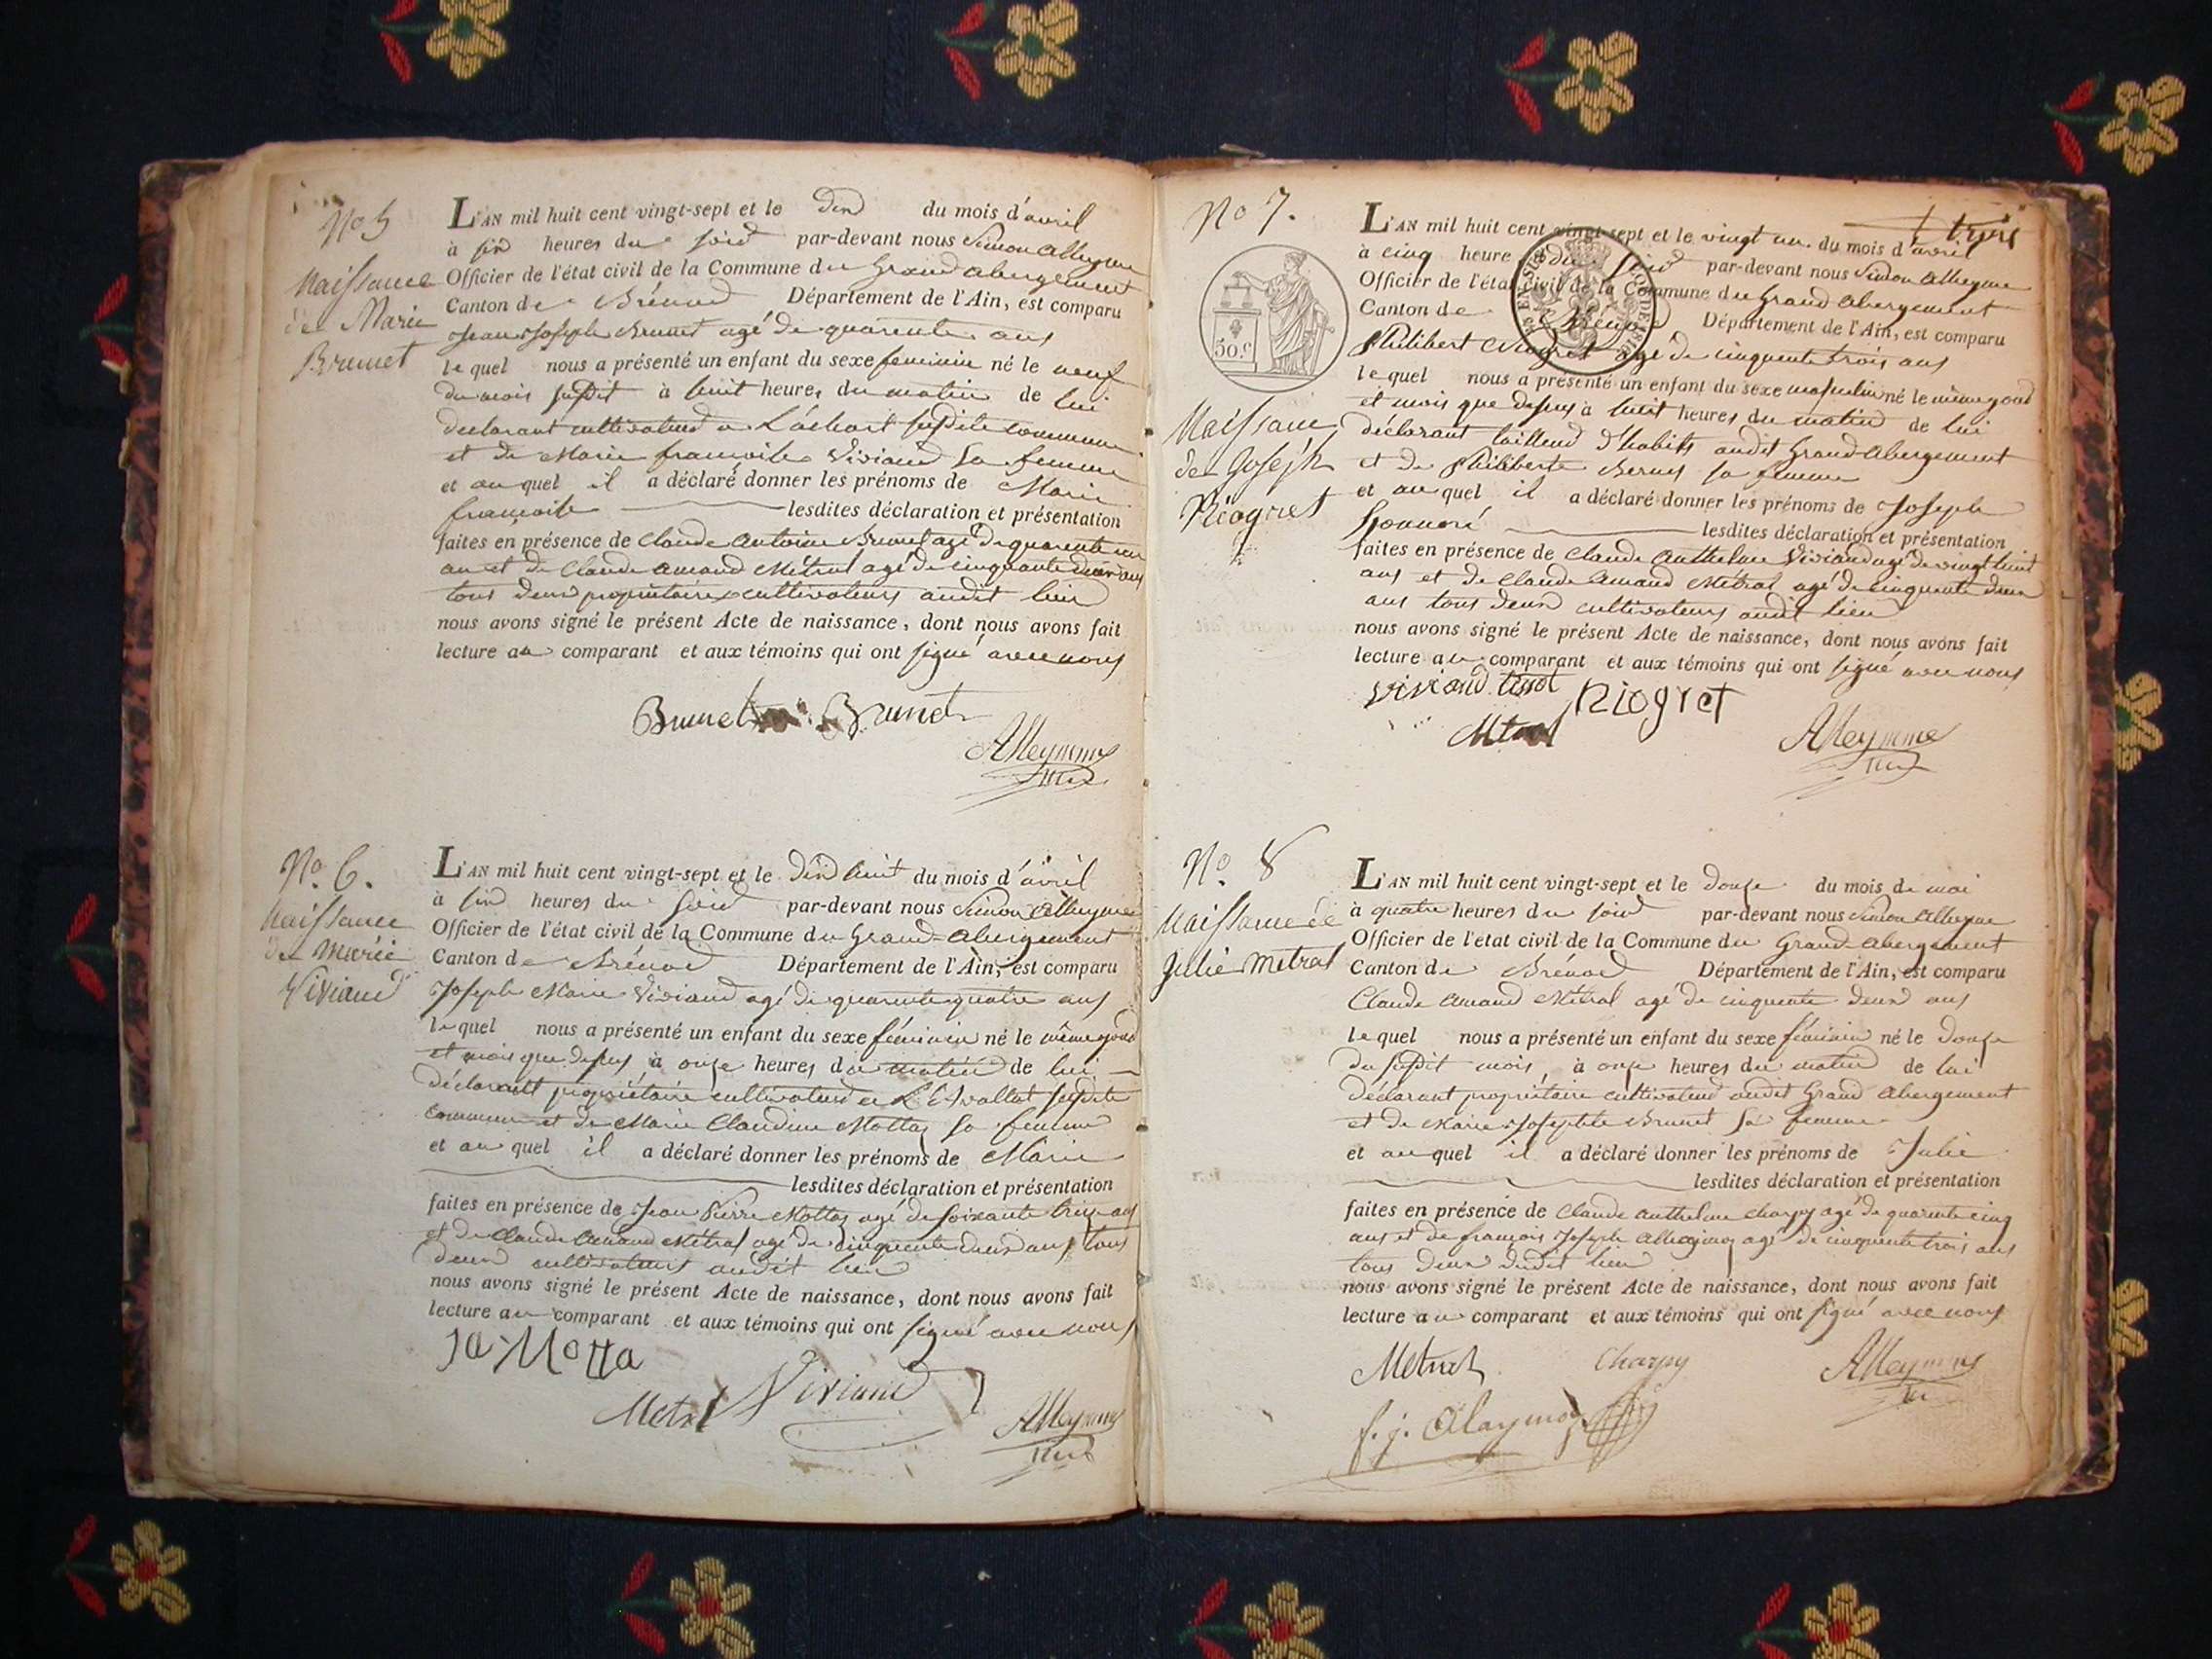 No 5
Naissance
de Marie
Brunet
L'AN mil huit cent vingt-sept et le dix du mois d'avril
à six heures du soir par-devant nous Simon Alleyme
Officier de l'état civil de la Commune du Grand abergement
Canton de Brénod Département de l'Ain, est comparu
Jean Joseph Brunet agé de quarente ans
le quel nous a présenté un enfant du sexe feminin né le neuf
du mois susdit à huit heures du matin de lui
declarant cultivateur a susdite commune
et de Marie francoise Viviand sa femme
et au quel il a déclaré donner les prénoms de Marie
francoise lesdites déclaration et présentation
faites en présence de Claude Antoine Brunet agé de quarente un
an et de Claude amand Métral agé de cinquante deux ans
tous deux propriétaires cultivateurs audit lieu
nous avons signé le présent Acte de naissance, dont nous avons fait
lecture au comparant et aux témoins qui ont signé avec nous
Brunet Brunet
Alleymme
No. 6.
Naissance
de Marie
Viviand
L'AN mil huit cent vingt-sept et le dix huit du mois d'avril
à six heures du soir par-devant nous Simon Alleyme
Officier de l'état civil de la Commune du Grand-abergement
Canton de Brénod Département de l'Ain, est comparu
Joseph Marie Viviand agé de quarente quatre ans
le quel nous a présenté un enfant du sexe féminin né le même jour
et mois que dessus à onze heures du matin de lui
déclarant propriétaire cultivateur a susdite
commune et de Marie Claudine Mottaz sa femme
et au quel il a déclaré donner les prénoms de Marie
lesdites déclaration et présentation
faites en présence de Jean Pierre Mottaz agé de soixante treize ans
et de Claude Amand Métral agé de cinquante deux ans tous
deux cultivateurs audit lieu
nous avons signé le présent Acte de naissance, dont nous avons fait
lecture au comparant et aux témoins qui ont signé avec nous
Motta
Metral Viviand
Alleymme
trois
No 7.
50 c
Naissance
de Joseph
Niogret
L'AN mil huit cent vingt-sept et le vingt un du mois d'avril
à cinq heure du soir par-devant nous Simon Alleyme
Officier de l'état civil de la Commune du Grand abergement
Canton de Brénod Département de l'Ain, est comparu
Philibert Niogret agé de cinquente trois ans
le quel nous a présenté un enfant du sexe masculin né le même jour
et mois que dessus à huit heures du matin de lui
déclarant tailleur d'habits audit Grand Abergement
et de Philiberte sa femme
et au quel il a déclaré donner les prénoms de Joseph
Honnoré lesdites déclaration et présentation
faites en présence de Claude Anthelme Viviand agé de vingt huit
ans et de Claude Amand Métral agé de cinquente deux
ans tous deux cultivateurs audit lieu
nous avons signé le présent Acte de naissance, dont nous avons fait
lecture au comparant et aux témoins qui ont signé avec nous
Viviand tissot Niogret
Metral
Alleymme
No. 8
Naissance de
Julie Metral
L'AN mil huit cent vingt-sept et le douze du mois de mai
à quatre heures du soir par-devant nous Simon Alleyme
Officier de l'état civil de la Commune du Grand abergement
Canton de Brénod Département de l'Ain, est comparu
Claude Amand Métral agé de cinquente deux ans
le quel nous a présenté un enfant du sexe féminin né le douze
du susdit mois, à onze heures du matin de lui
déclarant propriétaire cultivateur audit Grand Abergement
et de Marie Josephte Brunet sa femme
et au quel il a déclaré donner les prénoms de Julie
lesdites déclaration et présentation
faites en présence de Claude Anthelme Charpy agé de quarente cinq
ans et de françois Joseph agé de cinquente trois ans
tous deux dudit lieu
nous avons signé le présent Acte de naissance, dont nous avons fait
lecture au comparant et aux témoins qui ont signé avec nous
Metral Charpy
Alleymme
f. j. Alaymoz